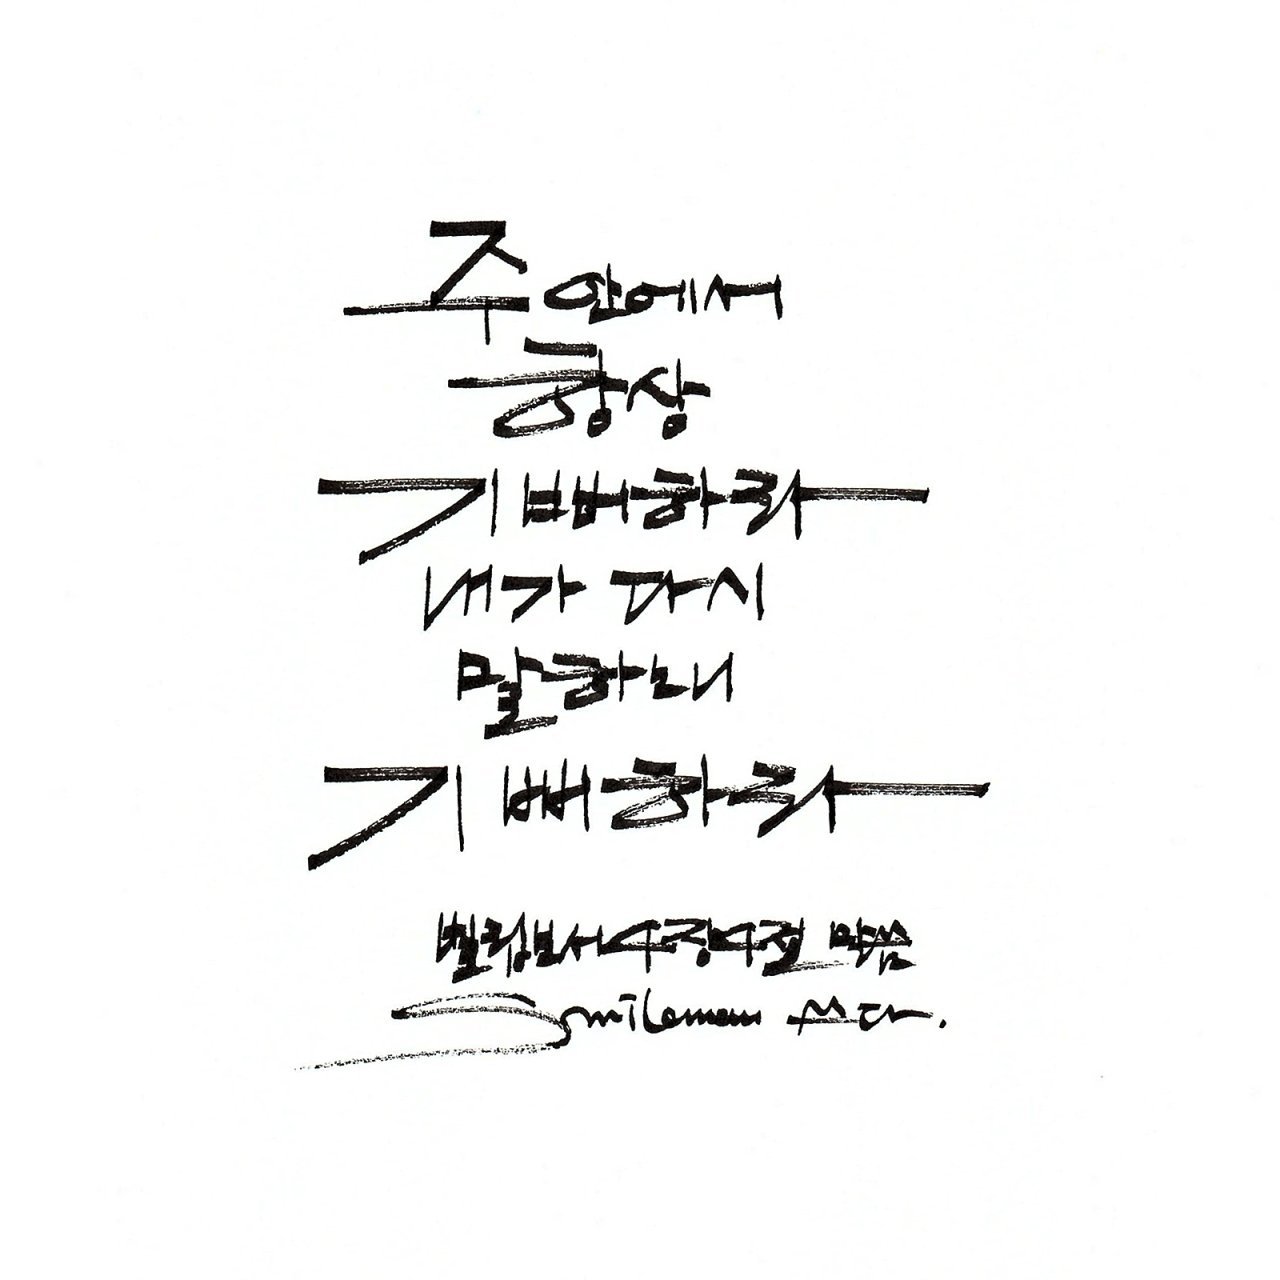 주 안에서
항상
기뻐하라
내가 다시
말하노니
기뻐하라
빌립보서 4장 4절 말씀
Smileman 쓰다.